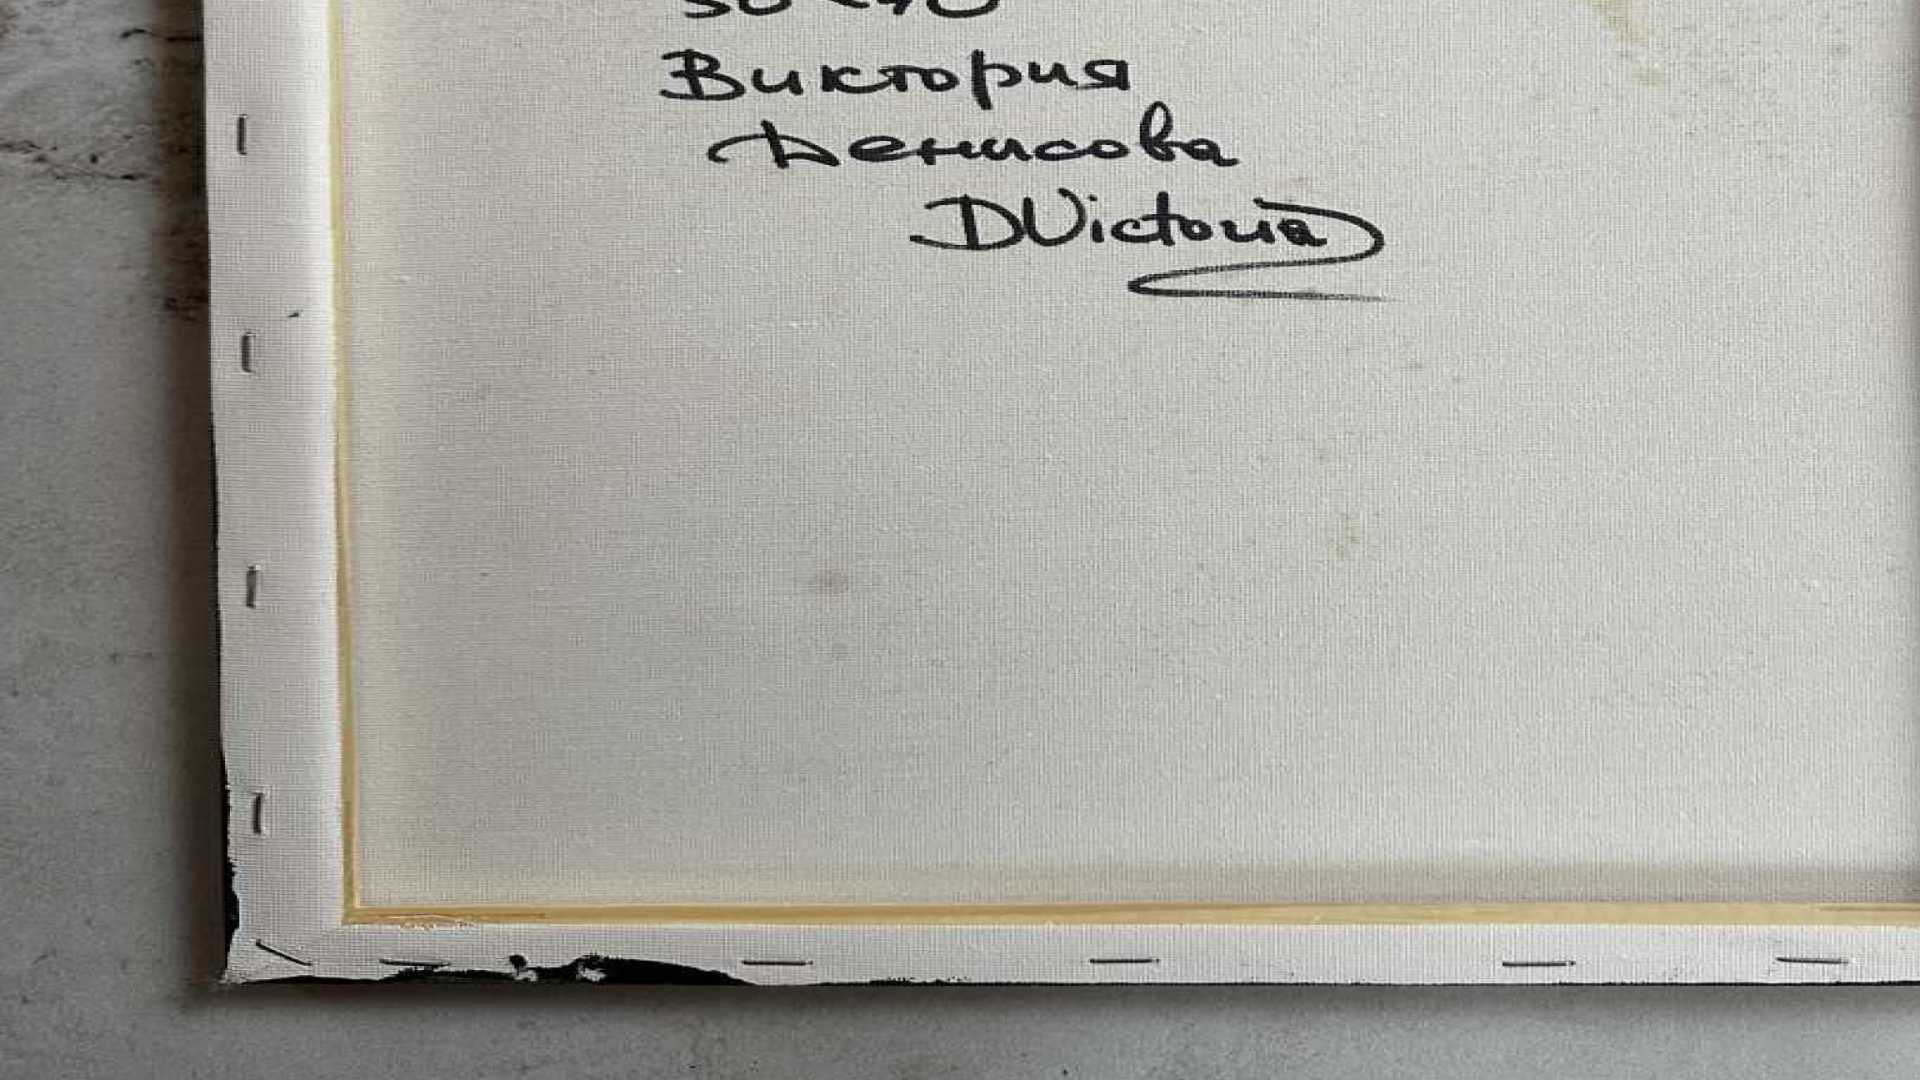 Виктория
Денисова
DVictoria